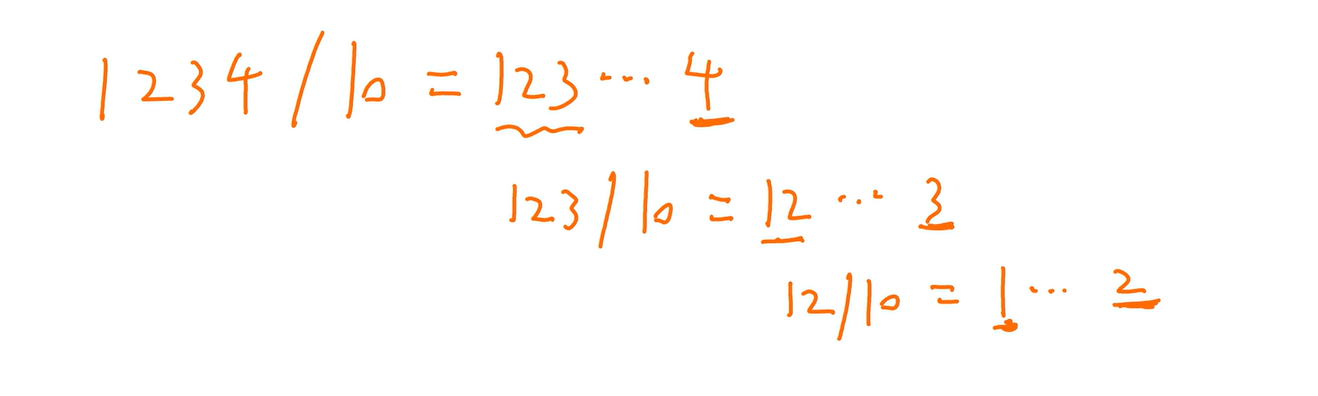 1234/10=123…4
123/10=12…3
12/10=1…2